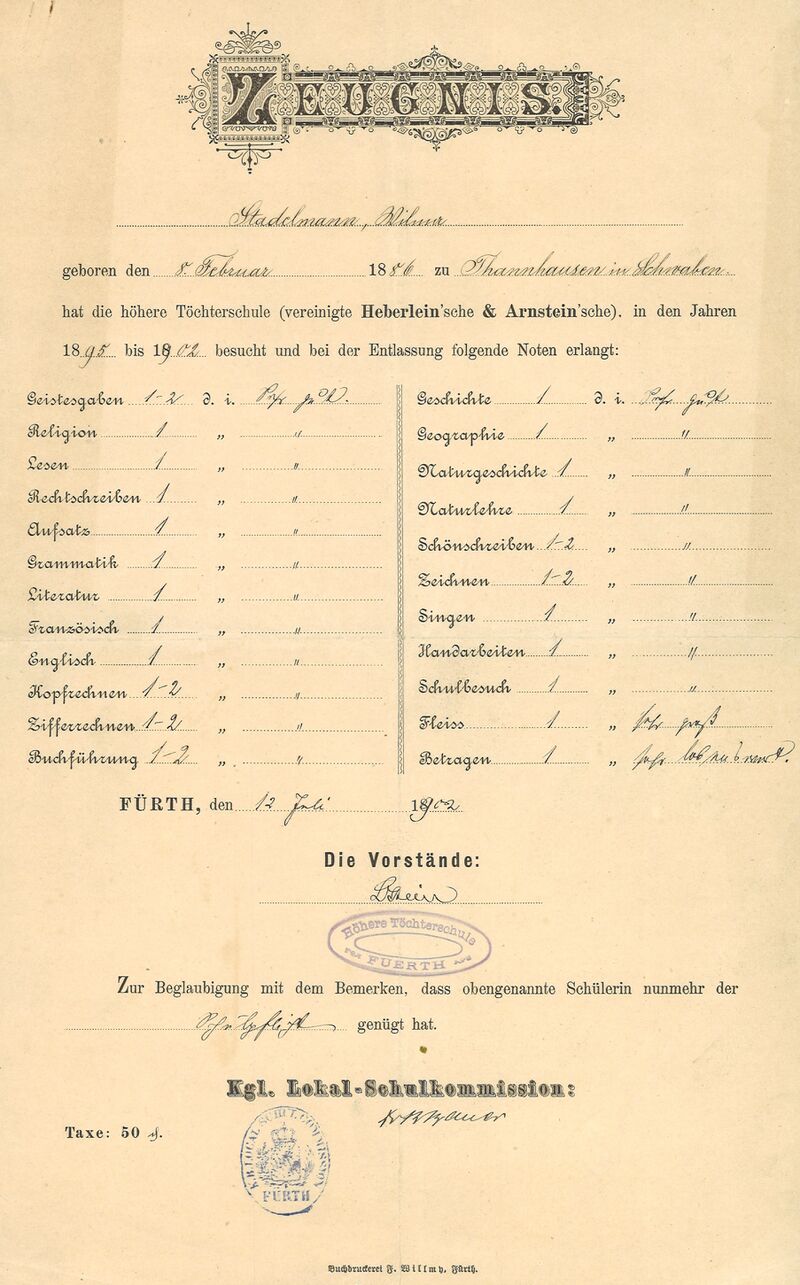 ZEUGNIS.
Stadelmann, Wilma
geboren den 8. Februar 1886 zu Thannhausen in Schwaben.
hat die höhere Töchterschule (vereinigte Heberlein'sche & Arnstein'sche), in den Jahren
1895 bis 1902 besucht und bei der Entlassung folgende Noten erlangt:
Geistesgaben 1-2 d. i. sehr gut.
Religion 1 „ "
Lesen 1 „ "
Rechtschreiben 1 „ "
Aufsatz 1 „ "
Grammatik 1 „ "
Literatur 1 „ "
Französisch 1 „ "
Englisch 1 „ "
Kopfrechnen 1-2 „ "
Zifferrechnen 1-2 „ "
Buchführung 1-2 „ "
Geschichte 1 d. i. sehr gut
Geographie 1 „ "
Naturgeschichte 1 „ "
Naturlehre 1 „ "
Schönschreiben 1-2 „ "
Zeichnen 1-2 „ "
Singen 1 „ "
Handarbeiten 1 „ "
Schulbesuch 1 „ "
Fleiss 1 „ sehr groß
Betragen 1 „ sehr lobenswert.
FÜRTH, den 12 Juli 1902
Die Vorstände:
Höhere Töchterschule
FUERTH
Zur Beglaubigung mit dem Bemerken, dass obengenannte Schülerin nunmehr der
Schulpflicht genügt hat.
Kgl. Lokal-Schulkommission:
Taxe: 50 ₰.
FÜRTH
Buchdruckerei F. Willmy, Fürth.